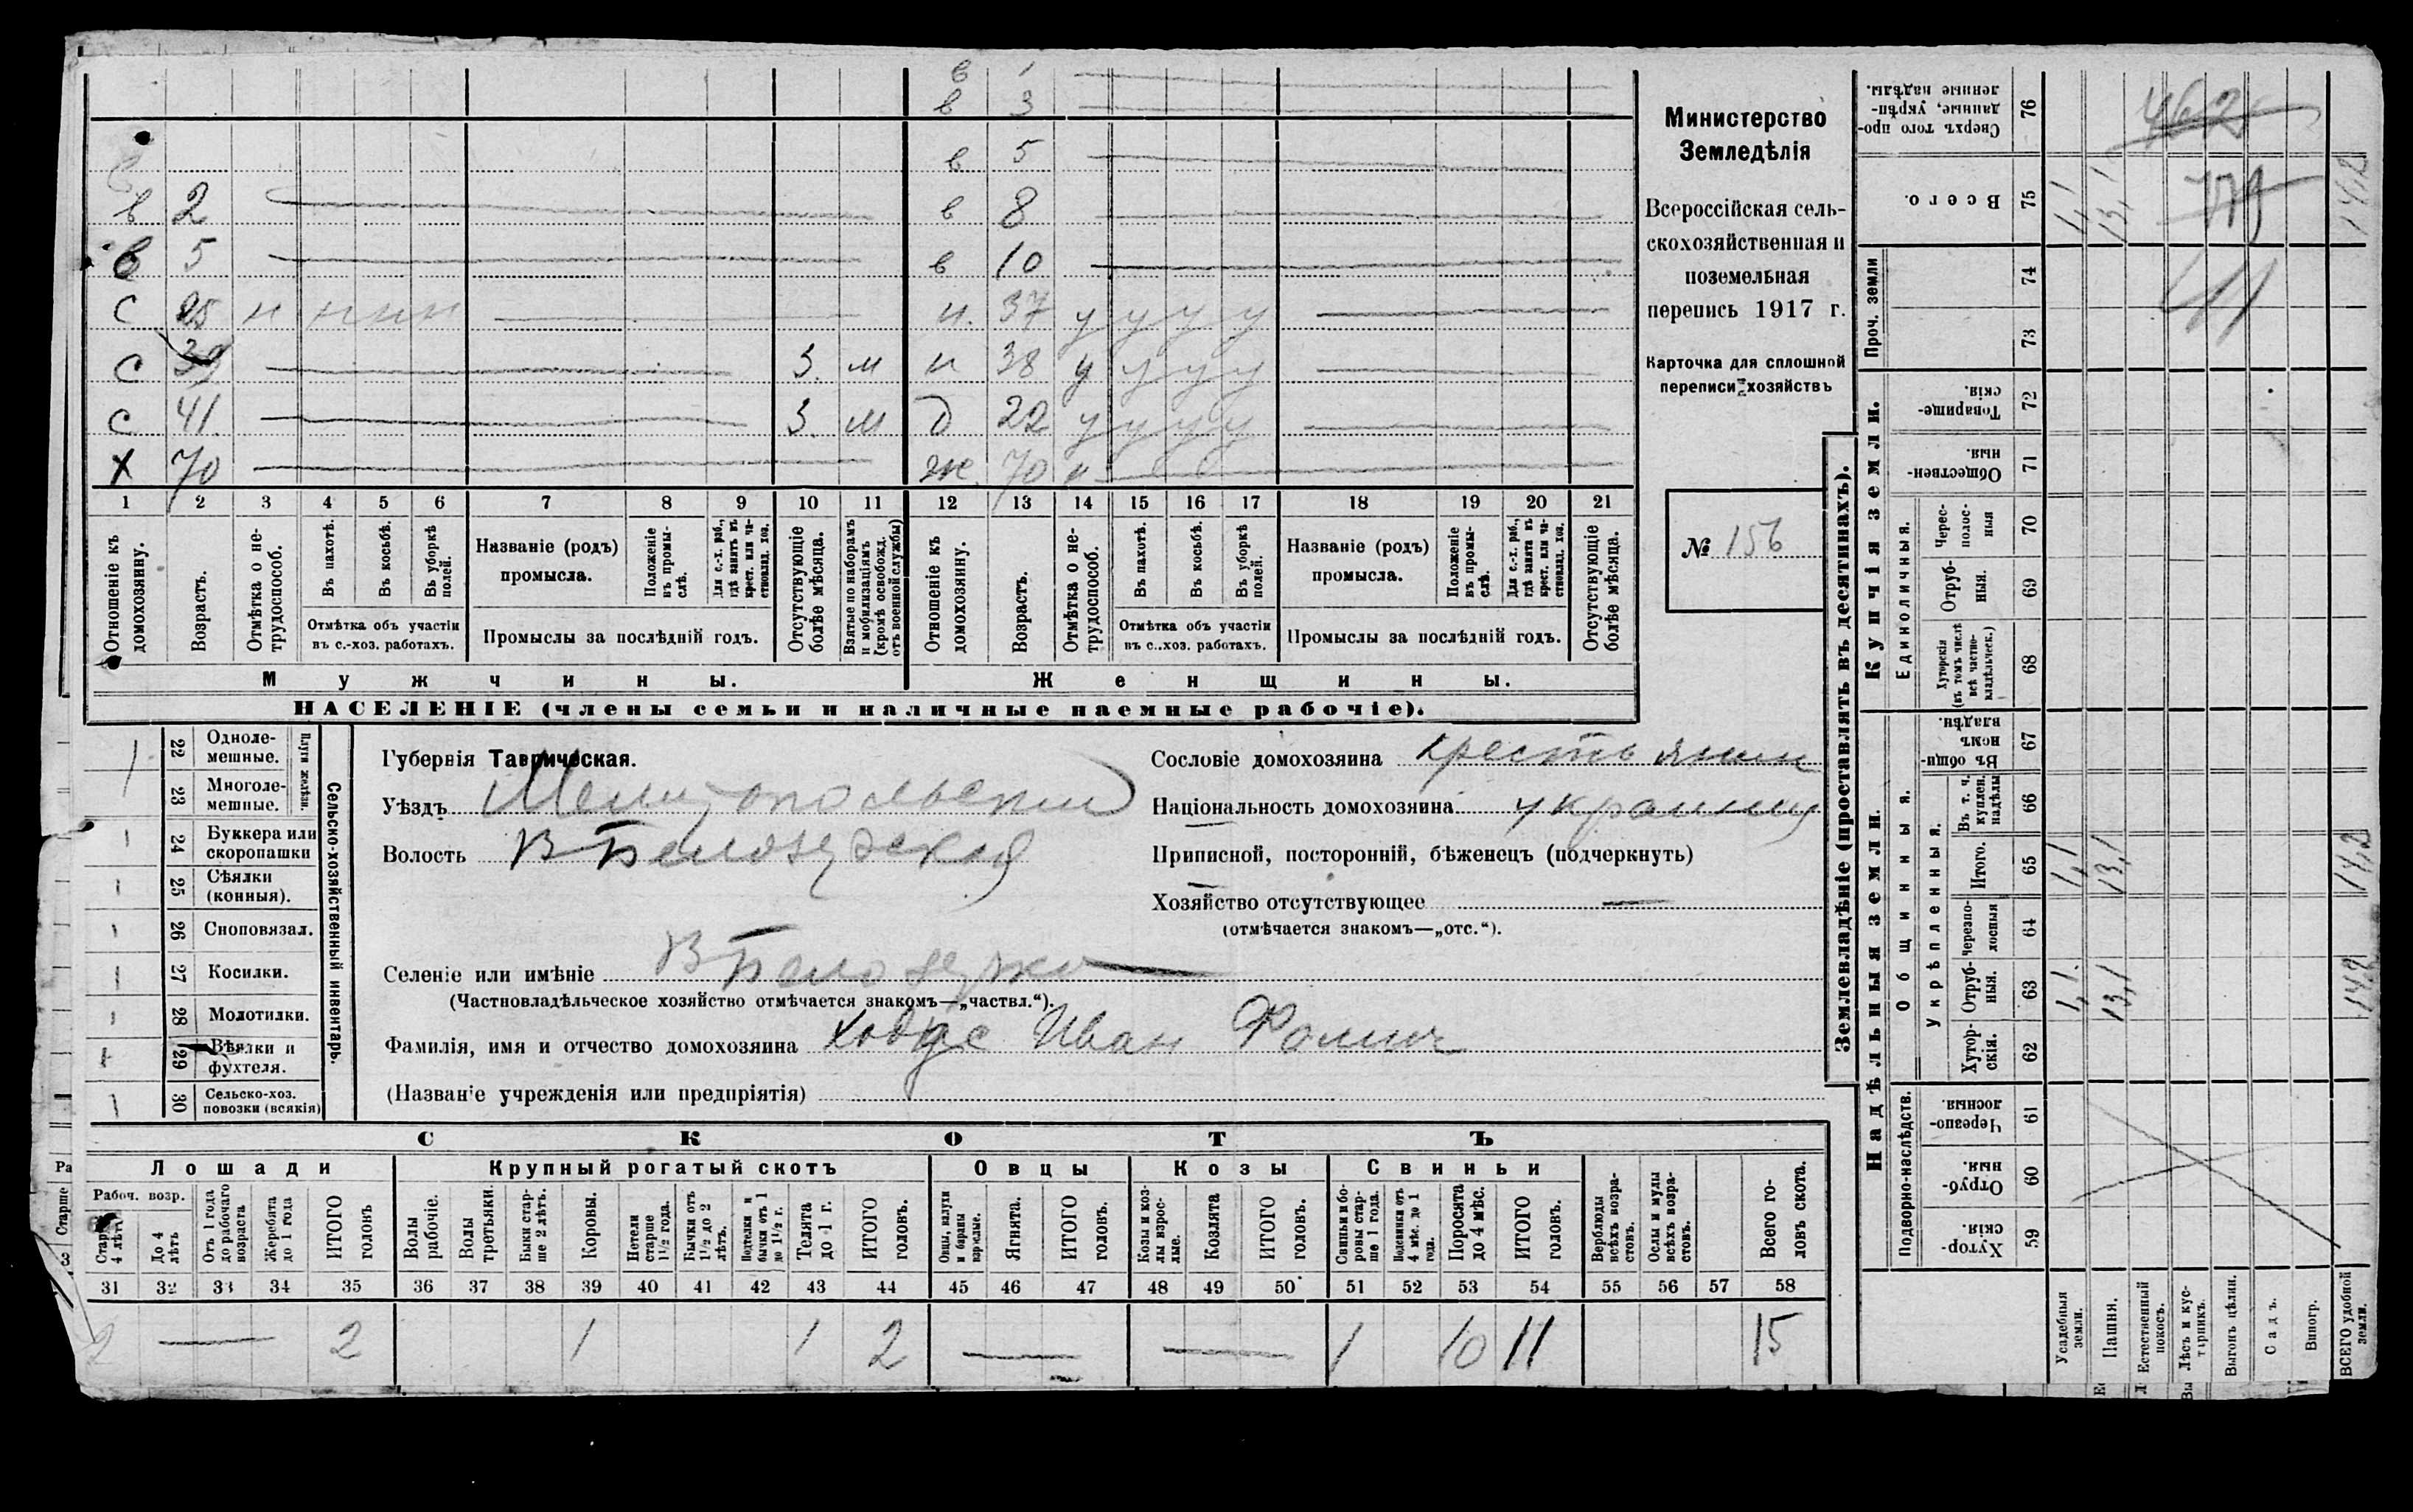 в 1
в 3
в 5
в 2 в 8
в 5 в 10
с 25 н н н н н. 37 у у у у
с 39 3. м н 38 у у у у
с 41 3. м д 22 у у у у
х 70 ж. 70 н
1 2 3 4 5 6 7 8 9 10 11 12 13 14 15 16 17 18 19 20 21
Отношеніе къ домохозяину.
Возрастъ.
Отмѣтка о не-трудоспособ.
Въ пахотѣ.
Въ косьбѣ.
Въ уборкѣ полей.
Отмѣтка объ участіи
въ с.-хоз. работахъ.
Названіе (родъ)
промысла.
Положеніе въ промы-слѣ.
Для с.-х. раб., гдѣ занятъ въ крест. или ча-стновлад. хоз.
Промыслы за послѣдній годъ.
Отсутствующіе болѣе мѣсяца.
Взятые по наборамъ и мобилизаціямъ (кромѣ освобожд. отъ военной службы)
Отношеніе къ домохозяину.
Возрастъ.
Отмѣтка о не-трудоспособ.
Въ пахотѣ.
Въ косьбѣ.
Въ уборкѣ полей.
Отмѣтка объ участіи
въ с..хоз. работахъ.
Названіе (родъ)
промысла.
Положеніе въ промы-слѣ.
Для с.-х. раб., гдѣ занята въ крест. или ча-стновлад. хоз.
Промыслы за послѣдній годъ.
Отсутствующіе болѣе мѣсяца.
Мужчины. Женщины.
НАСЕЛЕНІЕ (члены семьи и наличные наемные рабочіе).
Министерство
Земледѣлія
Всероссійская сель-
скохозяйственная и
поземельная
перепись 1917 г.
Карточка для сплошной
переписи хозяйствъ
№ 156
1 22 Одноле-мешные.
23 Многоле-мешные.
Плуги желѣзн.
1 24 Буккера или скоропашки
1 25 Сѣялки (конныя).
1 26 Сноповязал.
1 27 Косилки.
1 28 Молотилки.
1 29 Вѣялки и фухтеля.
1 30 Сельско-хоз. повозки (всякія)
Сельско-хозяйственный инвентарь.
Губернія Таврическая.
Уѣздъ Мелитопольский
Волость В Белозерская
Селеніе или имѣніе В Белозерка
(Частновладѣльческое хозяйство отмѣчается знакомъ—„частвл.“).
Фамилія, имя и отчество домохозяина Ходус Иван Фомич
(Названіе учрежденія или предпріятія)
Сословіе домохозяина крестьянин
Національность домохозяина украинец
Приписной, посторонній, бѣженецъ (подчеркнуть)
Хозяйство отсутствующее —
(отмѣчается знакомъ—„отс.“).
СКОТЪ
Лошади Крупный рогатый скотъ Овцы Козы Свиньи
Рабоч. возр.
Старше 4 лѣтъ
До 4 лѣтъ
Отъ 1 года до рабочаго возраста
Жеребята до 1 года
ИТОГО головъ
Волы рабочіе.
Волы третьяки.
Быки стар-ше 2 лѣтъ.
Коровы.
Нетели старше 1½ года.
Бычки отъ 1½ до 2 лѣтъ.
Подтелки и бычки отъ 1 до 1½ г.
Телята до 1 г.
ИТОГО головъ.
Овцы, валухи и бараны взрослые.
Ягнята.
ИТОГО головъ.
Козы и коз-лы взрос-лые.
Козлята
ИТОГО головъ.
Свиньи и бо-ровы стар-ше 1 года.
Подсвинки отъ 4 мѣс. до 1 года.
Поросята до 4 мѣс.
ИТОГО головъ.
Верблюды всѣхъ возра-стовъ.
Ослы и мулы всѣхъ возра-стовъ.
Всего го-ловъ скота.
31 32 33 34 35 36 37 38 39 40 41 42 43 44 45 46 47 48 49 50 51 52 53 54 55 56 57 58
2 — 2 1 1 2 — — 1 10 11 15
Землевладѣніе (проставлять въ десятинахъ).
Надѣльныя земли. Купчія земли.
Подворно-наслѣдств.
Общинныя.
Укрѣпленныя.
Единоличныя.
Проч. земли
Хутор-скія. 59
Отруб-ныя. 60
Черезпо-лосныя. 61
Хутор-скія. 62
Отруб-ныя. 63 1,1. 13,1 14,2
Черезпо-лосныя 64
Итого. 65 1,1 13,1 14,2
Въ т. ч. куплен. надѣлы 66
Въ общин-номъ владѣн. 67
Хуторскія (въ томъ числѣ всѣ частно-владѣльческ.) 68
Отруб-ныя. 69
Черес-полос-ныя 70
Обществен-ныя. 71
Товарище-скія. 72
73
74
Всего. 75 1,1 13,1 14,2
Сверхъ того про-данные, укрѣп-ленные надѣлы. 76
462
Усадебныя земли.
Пашня.
Естественный покосъ.
Лѣсъ и кус-тарникъ.
Выгонъ цѣлин.
Садъ.
Виногр.
ВСЕГО удобной земли.